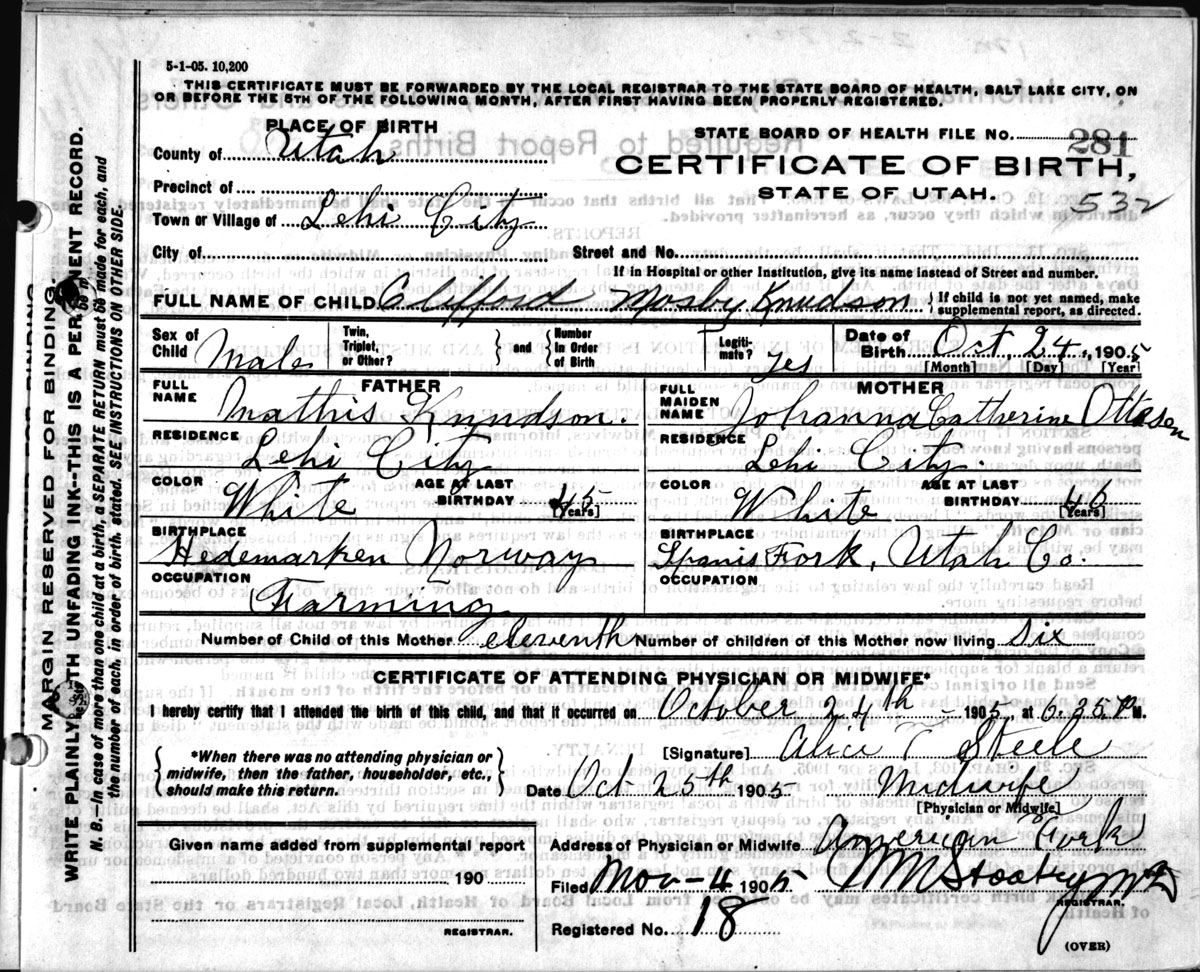 5-1-05. 10,200
THIS CERTIFICATE MUST BE FORWARDED BY THE LOCAL REGISTRAR TO THE STATE BOARD OF HEALTH, SALT LAKE CITY, ON
OR BEFORE THE 5TH OF THE FOLLOWING MONTH, AFTER FIRST HAVING BEEN PROPERLY REGISTERED.
PLACE OF BIRTH
STATE BOARD OF HEALTH FILE No. 281
County of Utah
CERTIFICATE OF BIRTH,
STATE OF UTAH.
532
Precinct of
Town or Village of Lehi City
City of
Street and No.
If in Hospital or other Institution, give its name instead of Street and number.
FULL NAME OF CHILD Clifford Mosby Knudson { If child is not yet named, make
supplemental report, as directed.
Sex of Child Male
Twin, Triplet, or Other? } and { Number In Order of Birth
Legitimate? Yes
Date of Birth Oct 24, 1905
[Month] [Day] [Year]
FATHER
MOTHER
FULL NAME Mathis Knudson.
FULL MAIDEN NAME Johanna Catherine Ottesen
RESIDENCE Lehi City
RESIDENCE Lehi City.
COLOR White AGE AT LAST BIRTHDAY 45 [Years]
COLOR White AGE AT LAST BIRTHDAY 46 [Years]
BIRTHPLACE Hedemarken Norway
BIRTHPLACE Spanis Fork, Utah Co.
OCCUPATION Farming
OCCUPATION
Number of Child of this Mother eleventh Number of children of this Mother now living Six
CERTIFICATE OF ATTENDING PHYSICIAN OR MIDWIFE*
I hereby certify that I attended the birth of this child, and that it occurred on October 24th 1905, at 6.25 P. M.
{ *When there was no attending physician or
midwife, then the father, householder, etc.,
should make this return. }
[Signature] Alice T Steele
Date Oct 25th 1905 Midwife
[Physician or Midwife]
Given name added from supplemental report
190
REGISTRAR.
Address of Physician or Midwife American Fork
Filed Nov-4 1905
REGISTRAR.
Registered No. 18
(OVER)
MARGIN RESERVED FOR BINDING.
WRITE PLAINLY WITH UNFADING INK--THIS IS A PERMANENT RECORD.
N. B.--In case of more than one child at a birth, a SEPARATE RETURN must be made for each, and
the number of each, in order of birth, stated. SEE INSTRUCTIONS ON OTHER SIDE.